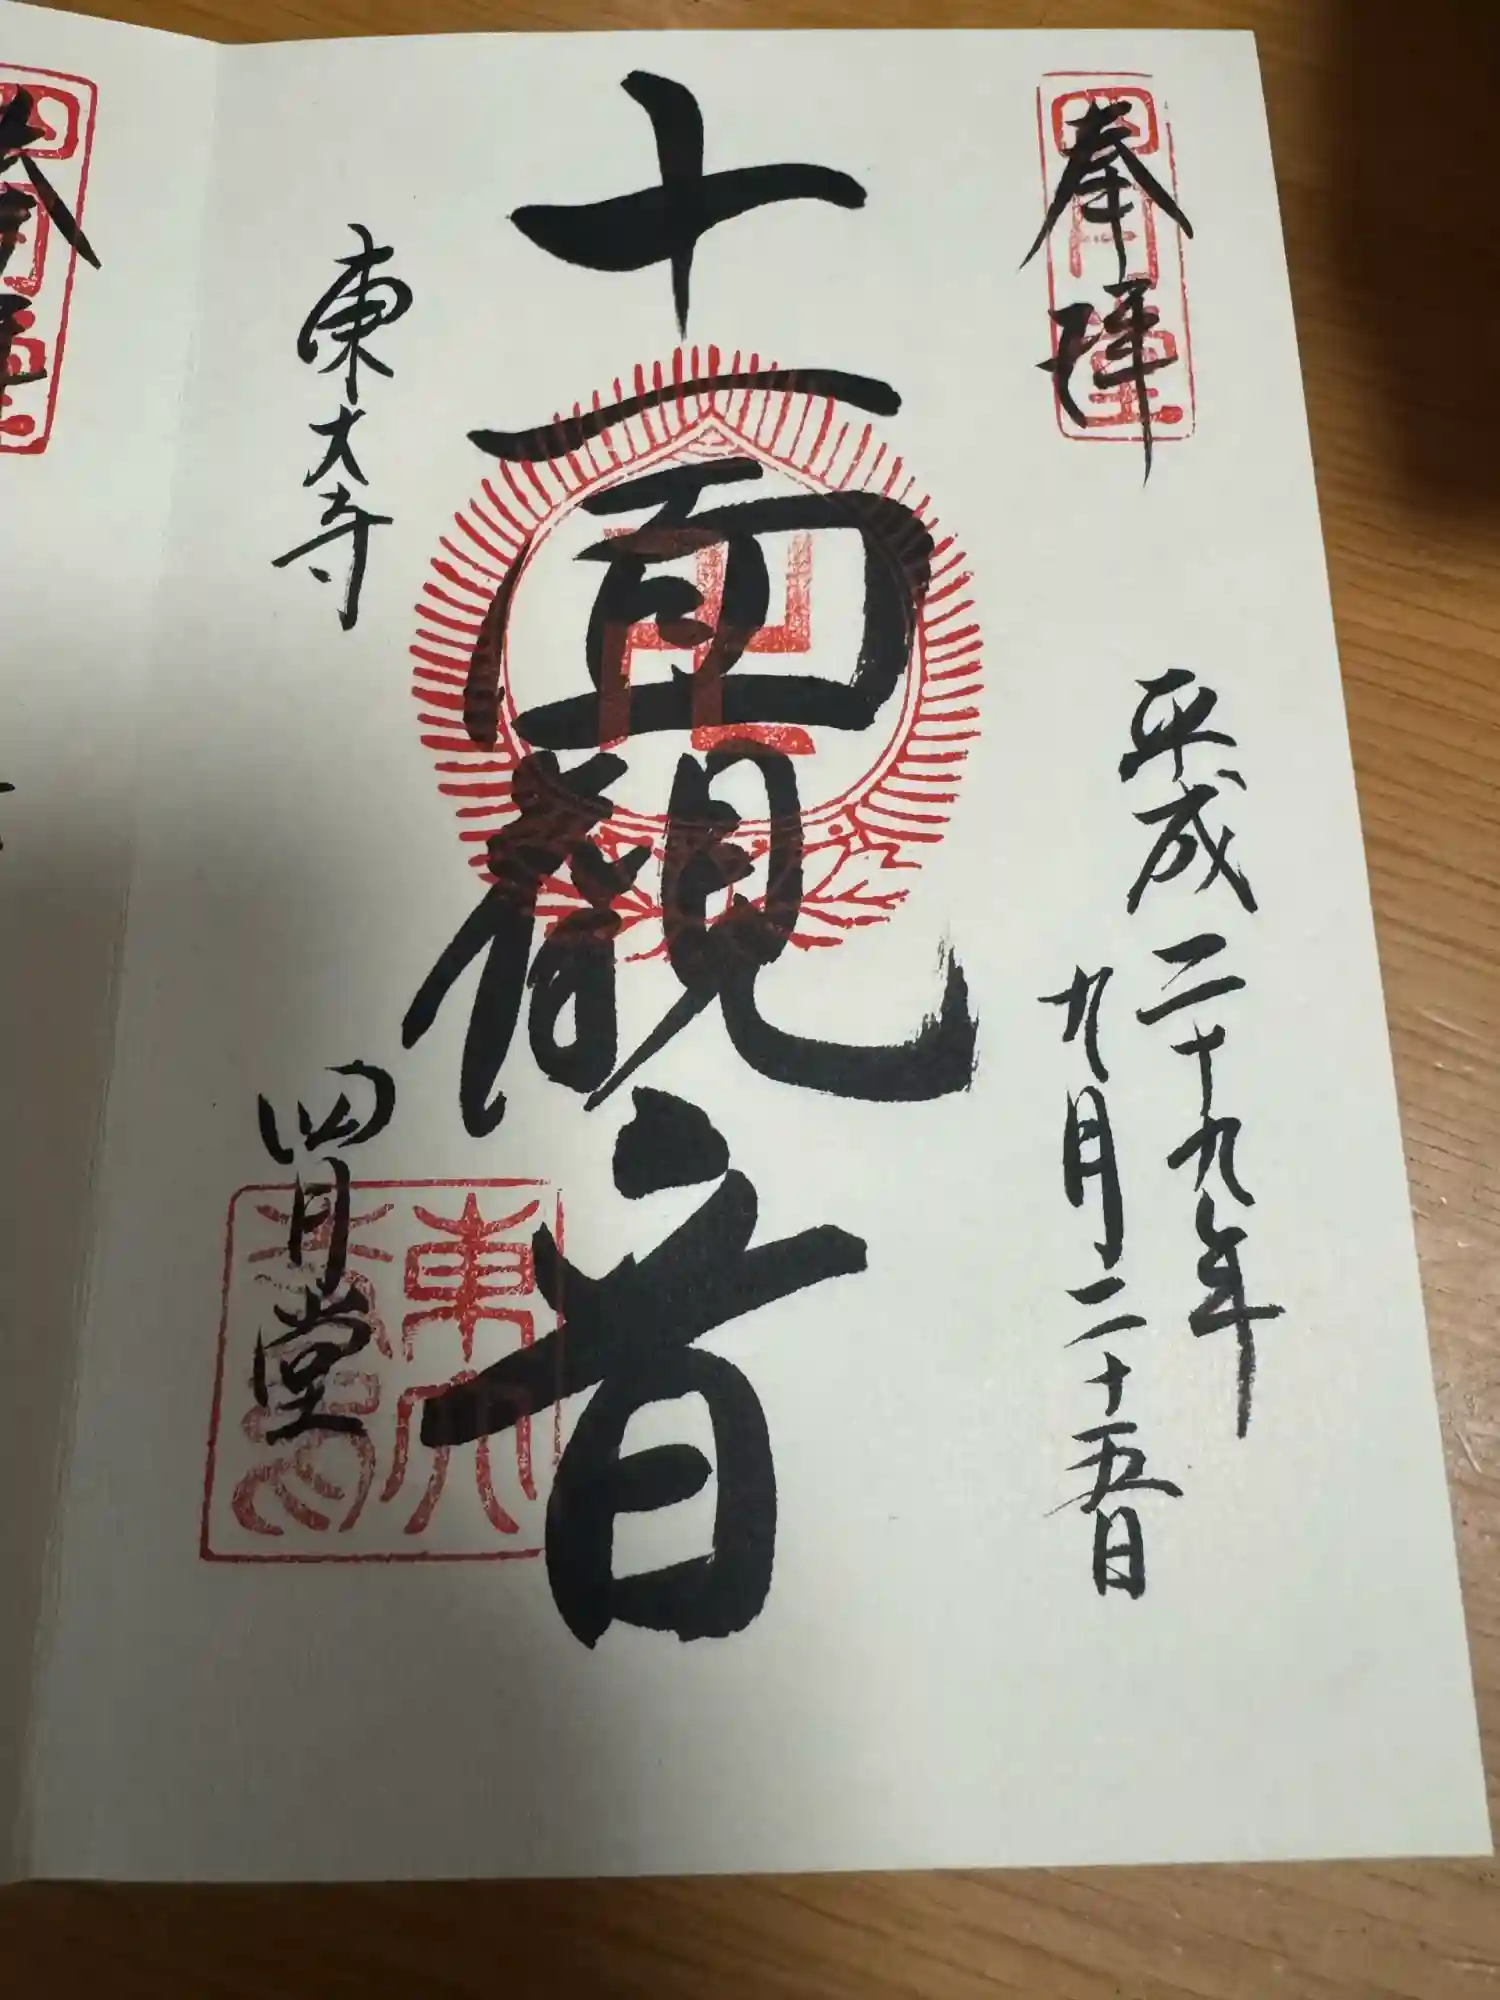 奉拝
四月堂
平成二十九年
九月二十五日
十一面観音
東大寺
四月堂